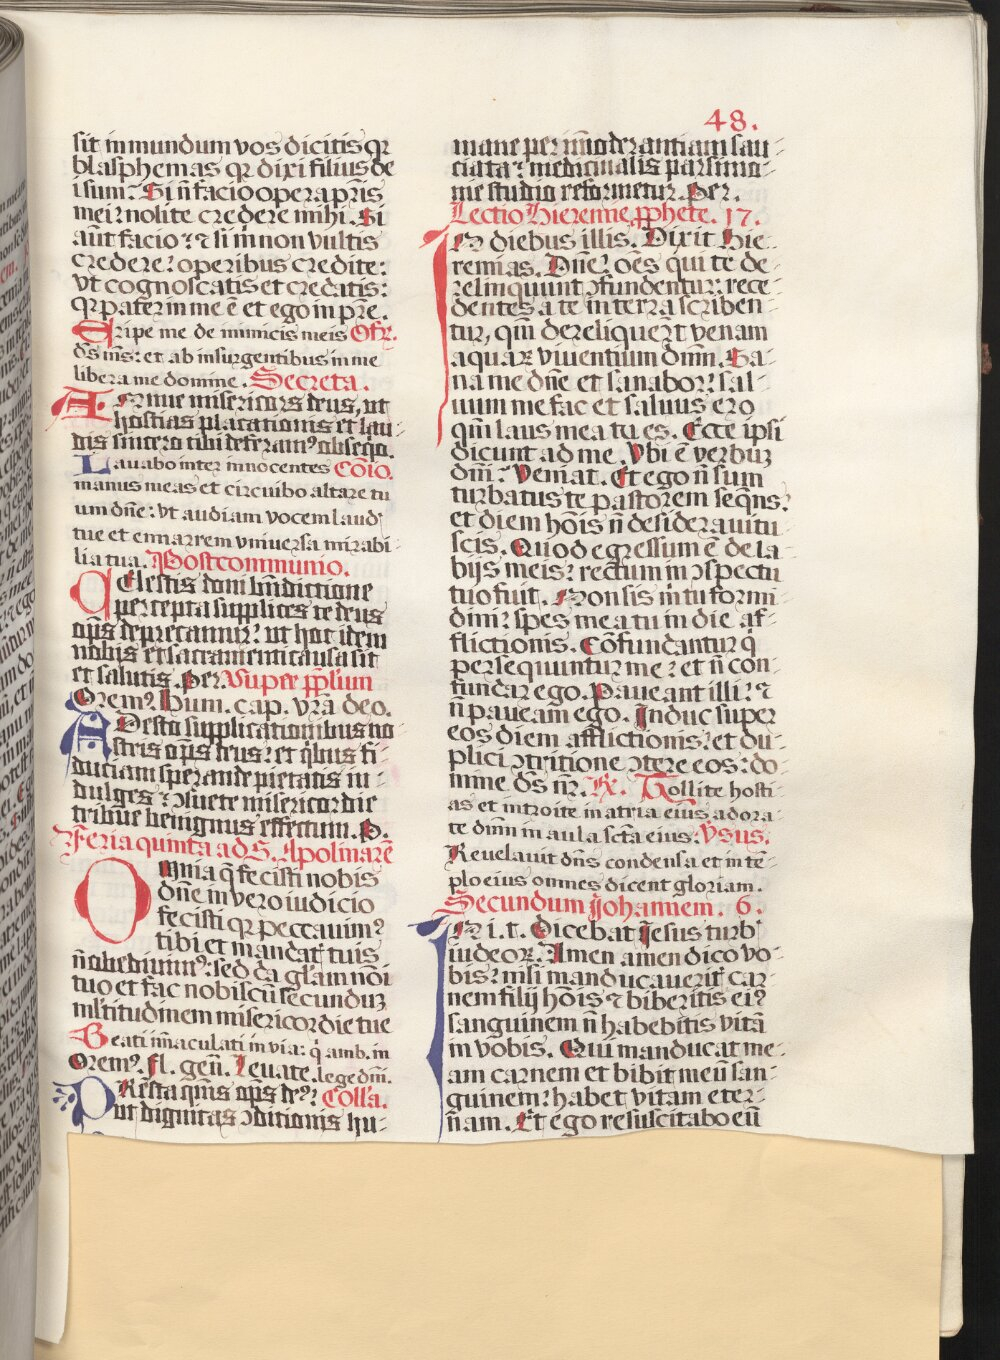 48.
sit in mundum vos dicitis qꝛ
blasphemas qꝛ dixi filius de
i sum? Si n̄ facio opera pr̄is
mei? nolite credere mihi. Si
aūt facio? ⁊ si mn̄on vultis
credere? operibus credite:
vt cognoscatis et credatis:
qꝛ pater in me ē et ego in pr̄e.
Eripe me de inimicis meis Ofr̄.
ds̄ ms̄: et ab insurgentibus in me
libera me domine. Secreta.
Annue misericors deus, ut
hostias placationis et lau-
dis sincero tibi deferam⁹ obseq̄o.
Lavabo inter innocentes Cōio.
manus meas et circuibo altare tu
um dn̄e: vt audiam vocem laud
tue et ennarrem vniuersa mirabi-
lia tua. Postcommunio.
Celestis doni bn̄dictione
percepta supplices te deus
op̄s deprecamur? ut hoc idem
nobis et sacramenti causa sit
et salutis. Per. Super pp̄lum
Orem⁹. Hum. cap. vr̄a deo.
Adesto supplicationibus no-
stris op̄s deus? et q̇bus fi-
duciam sperande pietatis in-
dulges? ɔsuete misericordie
tribue benignus effectum. P.
Feria quinta ad S. Apolinarē
Omnia q̄ fecisti nobis
dn̄e in vero iudicio
fecisti qꝛ peccauim⁹
tibi et mandat tuis
n̄ obediuim⁹: sed da gl̄am nōi
tuo et fac nobiscū secunduꝫ
ml̄titudinem misericordie tue
Beati im̄aculati in via: q̇ amb. in
Orem⁹. Fl. gen̄. Leuate. lege dn̄i.
Presta qm̄s op̄s de⁹? Coll̄a.
ut dignitas ɔditionis hu-
mane per im̄oderantiam sau-
ciata? medicinalis parsimo-
nie studio reformetur. Per.
Lectio Hieremie pp̄hete. 17.
In diebus illis? Dixit Hie-
remias. Dn̄e? oēs qui te de-
relinquunt ɔfundentur: rece-
dentes a te in terra scriben-
tur, qm̄ dereliquer̄t venam
aquaꝝ viuentium dn̄m. Sa-
na me dn̄e et sanabor? sal-
uum me fac et saluus ero
qm̄ laus mea tu es. Ecce ipsi
dicunt ad me. Vbi ē verbuꝫ
dn̄i? Veniat. Et ego n̄ sum
turbatus te pastorem seq̄ns?
et diem hōis n̄ desiderauitu
scis. Quod egressum ē de la-
bijs meis? rectum in ɔspectu
tuo fuit. Non sis m̄ tu formi-
dini? spes mea tu in die af-
flictionis. Cōfundantur q̇
persequuntur me? et n̄ con-
fundar ego. Paueant illi? ⁊
n̄ paueam ego. Induc super
eos diem afflictionis? et du-
plici ɔtritione ɔtere eos: do-
mine ds̄ nr̄. ℟. Tollite hosti-
as et introite in atria eius adora-
te dn̄m in aula sc̄ta eius. Ꝟsus.
Revelauit dn̄s condensa et in tē-
plo eius omnes dicent gloriam.
Secundum Johannem. 6.
In i. t. Dicebat Jesus turb
iudeoꝝ. Amen amen dico vo-
bis? nisi manducauerit car-
nem filij hōis ⁊ biberitis ei⁹
sanguinem n̄ habebitis vitā
in vobis. Qui manducat me-
am carnem et bibit meū san-
guinem? habet vitam eter-
nam. Et ego resuscitabo eū